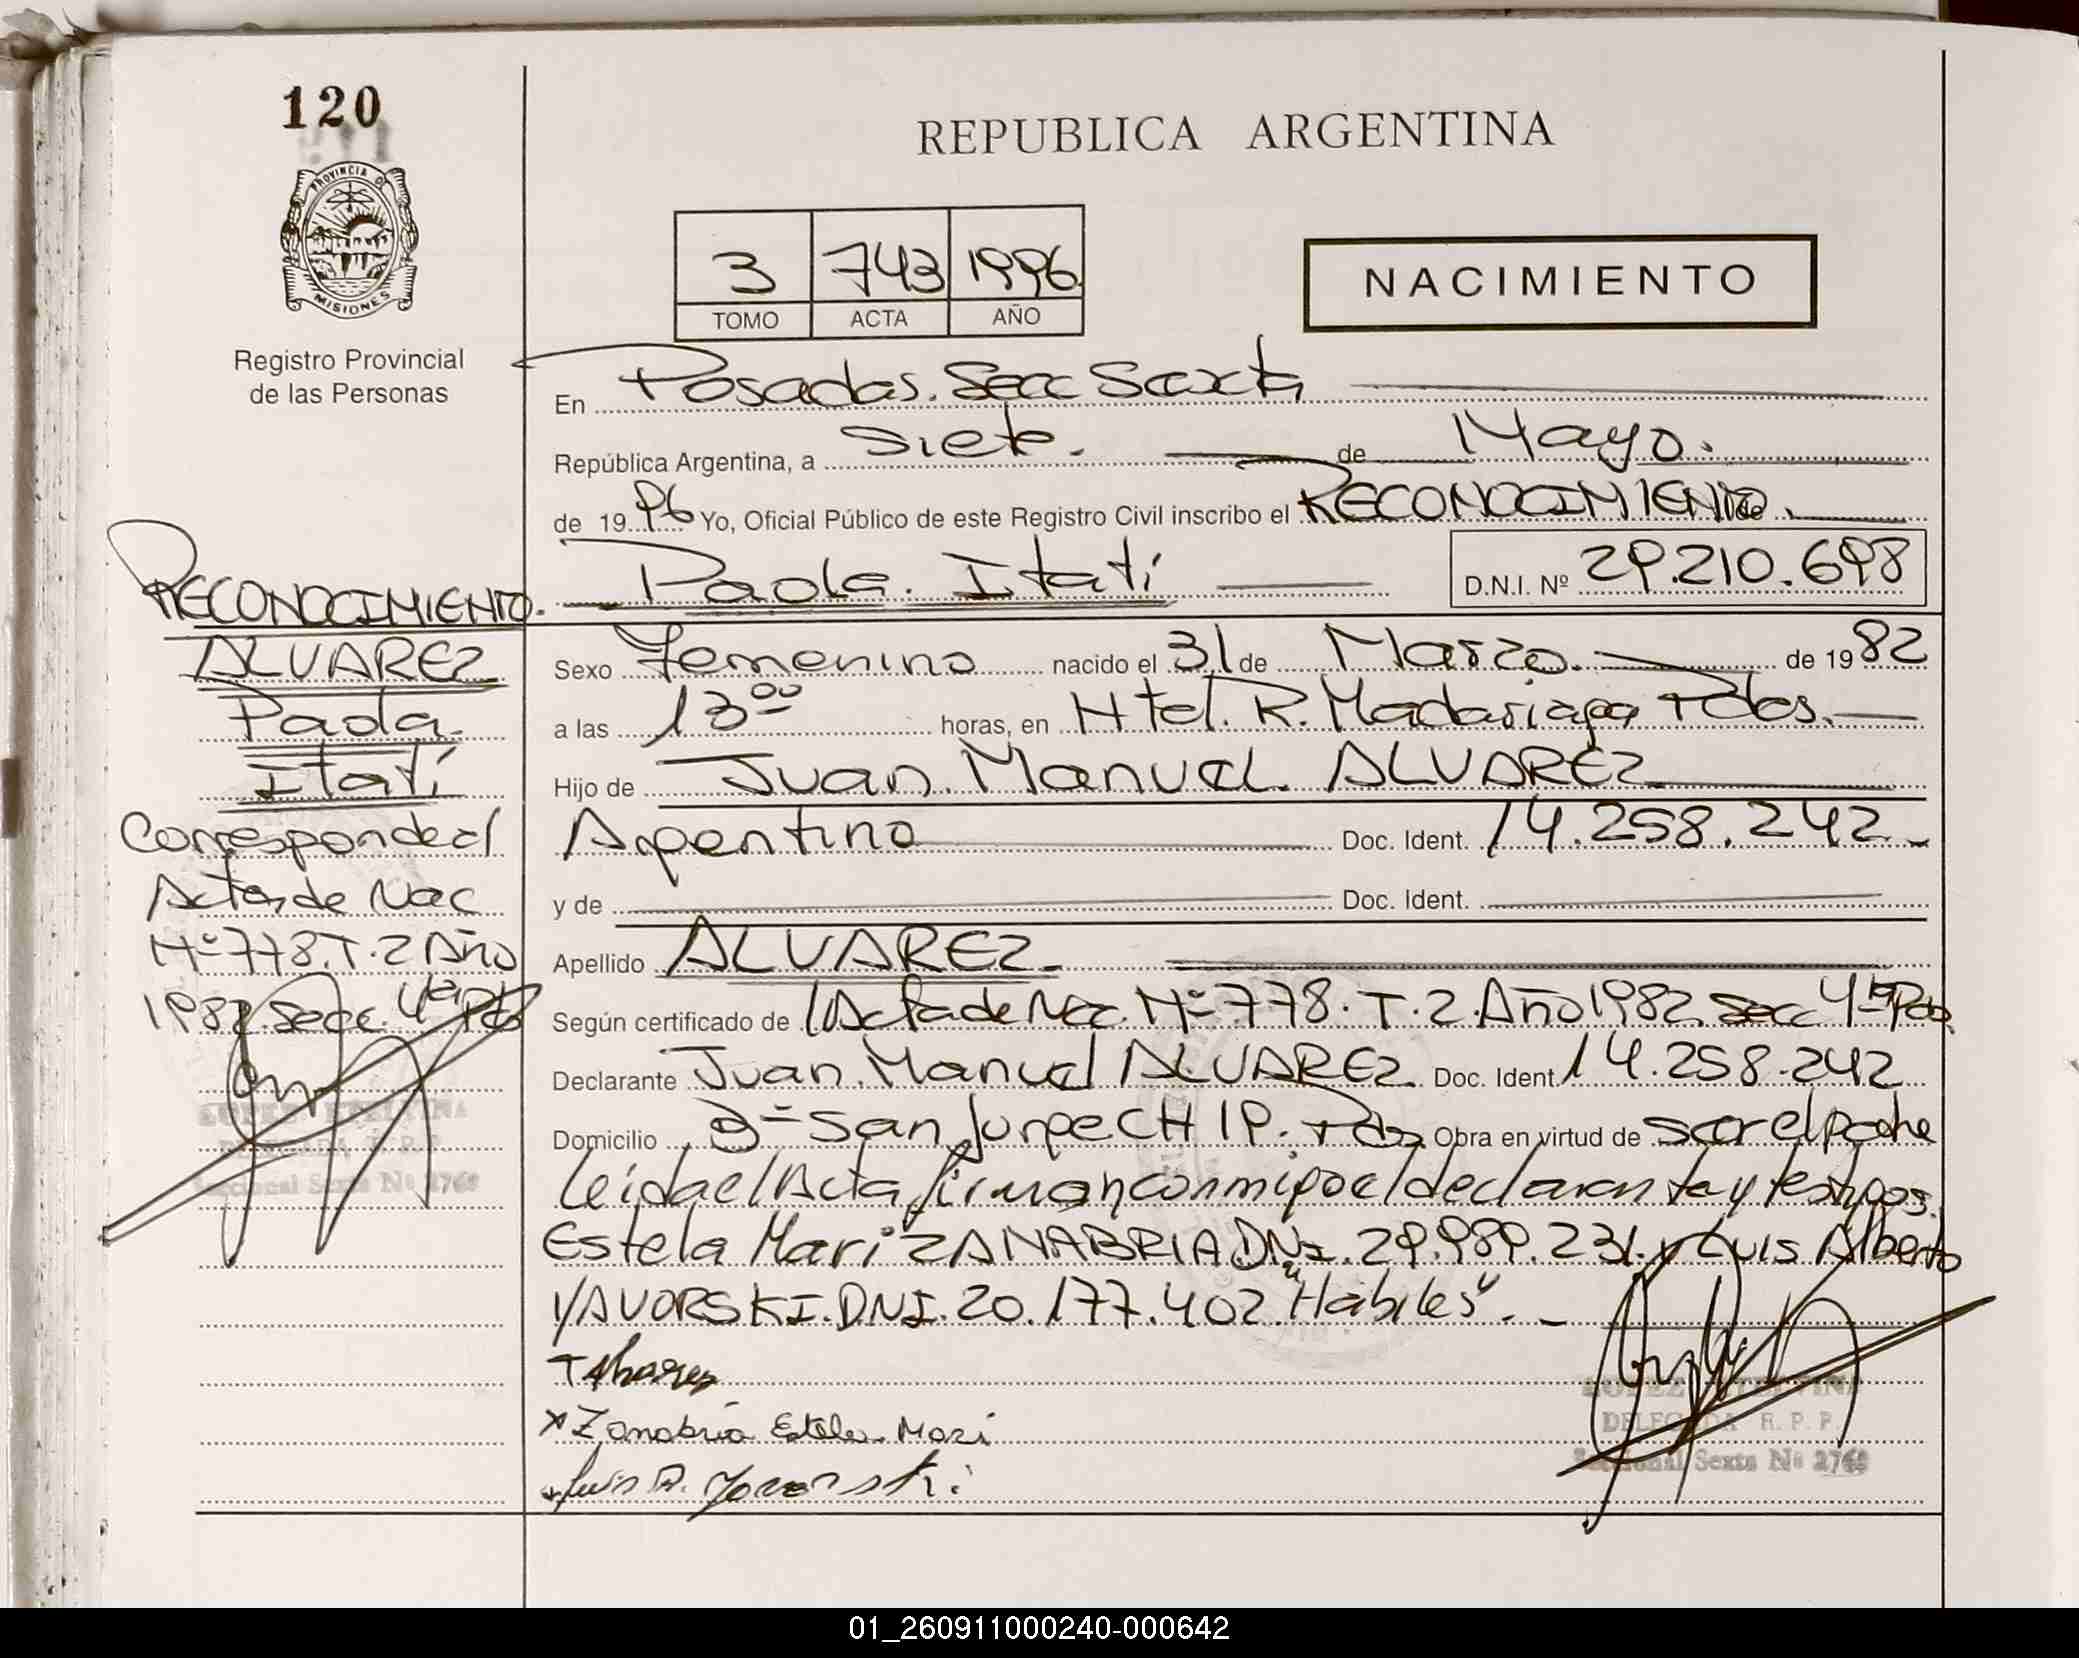 120
PROVINCIA DE
MISIONES
Registro Provincial
de las Personas
REPUBLICA ARGENTINA
3 743 1996
TOMO ACTA AÑO
NACIMIENTO
En Posadas. Secc Sexta
República Argentina, a Siete. de Mayo.
de 19 96 Yo, Oficial Público de este Registro Civil inscribo el RECONOCIMIENTO de
Paola. Itatí D.N.I. Nº 29.210.698
Sexo Femenino nacido el 31 de Marzo. de 19 82
a las 13 00 horas, en Htel. R. Madariaga Pdas.
Hijo de Juan. Manuel. ALVAREZ
Argentino Doc. Ident. 14.258.242
y de Doc. Ident.
Apellido ALVAREZ
Según certificado de Acta de Nac. Nº 778. T. 2. Año 1982. Secc 4ta Pdas.
Declarante Juan. Manuel ALVAREZ Doc. Ident. 14.258.242
Domicilio San Jorge CH 19. Pdas Obra en virtud de ser el padre
Leída el Acta firman conmigo el declarante y testigos.
Estela Mari ZANABRIA DNI. 29.989.231. y Luis Alberto
YAVORSKI. DNI. 20.177.402 "Hábiles".
Zanabria Estela Mari
Luis A. Yavorski.
LOPEZ ETELVINA
DELEGADA R. P. P.
Seccional Sexta Nº 2768
RECONOCIMIENTO.
ALVAREZ
Paola.
Itatí
Corresponde al
Acta de Nac
Nº 778. T. 2 Año
1982. Secc. 4ta Pdas
LOPEZ ETELVINA
DELEGADA R. P. P.
Seccional Sexta Nº 2768
01_260911000240-000642